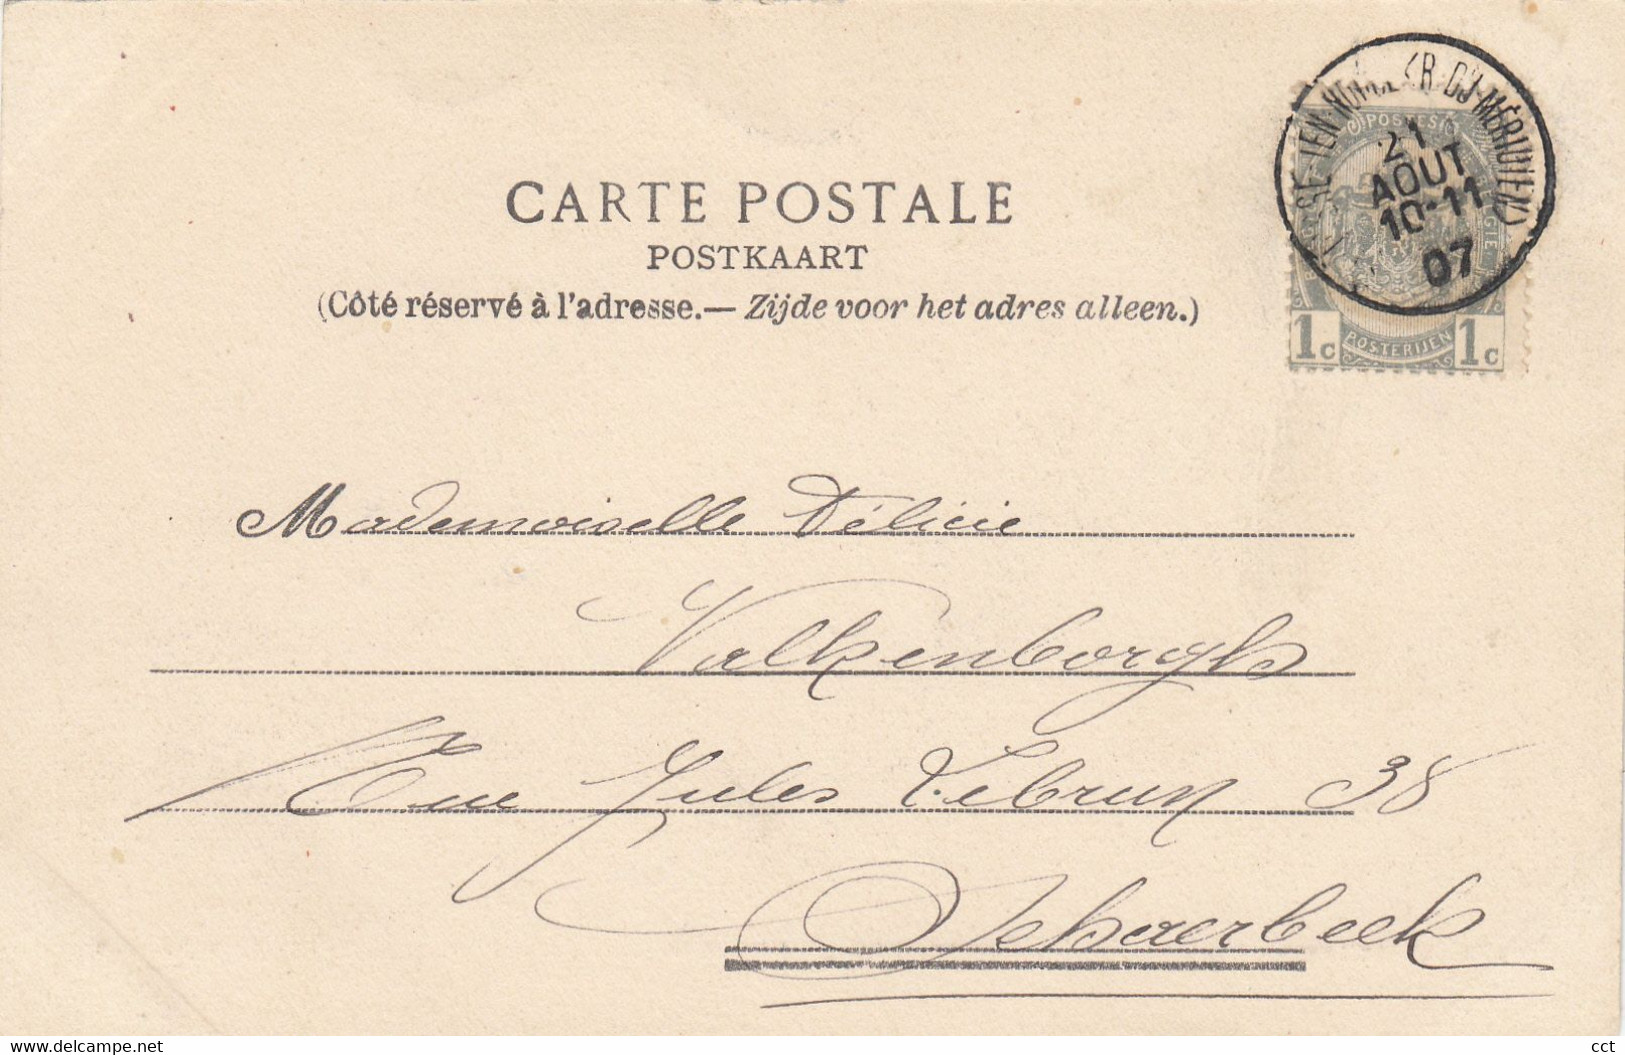 CARTE POSTALE
POSTKAART
(Côté réservé à l'adresse.— Zijde voor het adres alleen.)
POSTES
BELGIE
21
AOUT
10-11
07
1c POSTERIJEN 1c
Mademoiselle Félicie
Valkenborgh
Rue Jules Lebrun 38
Schaerbeek
www.delcampe.net
cct